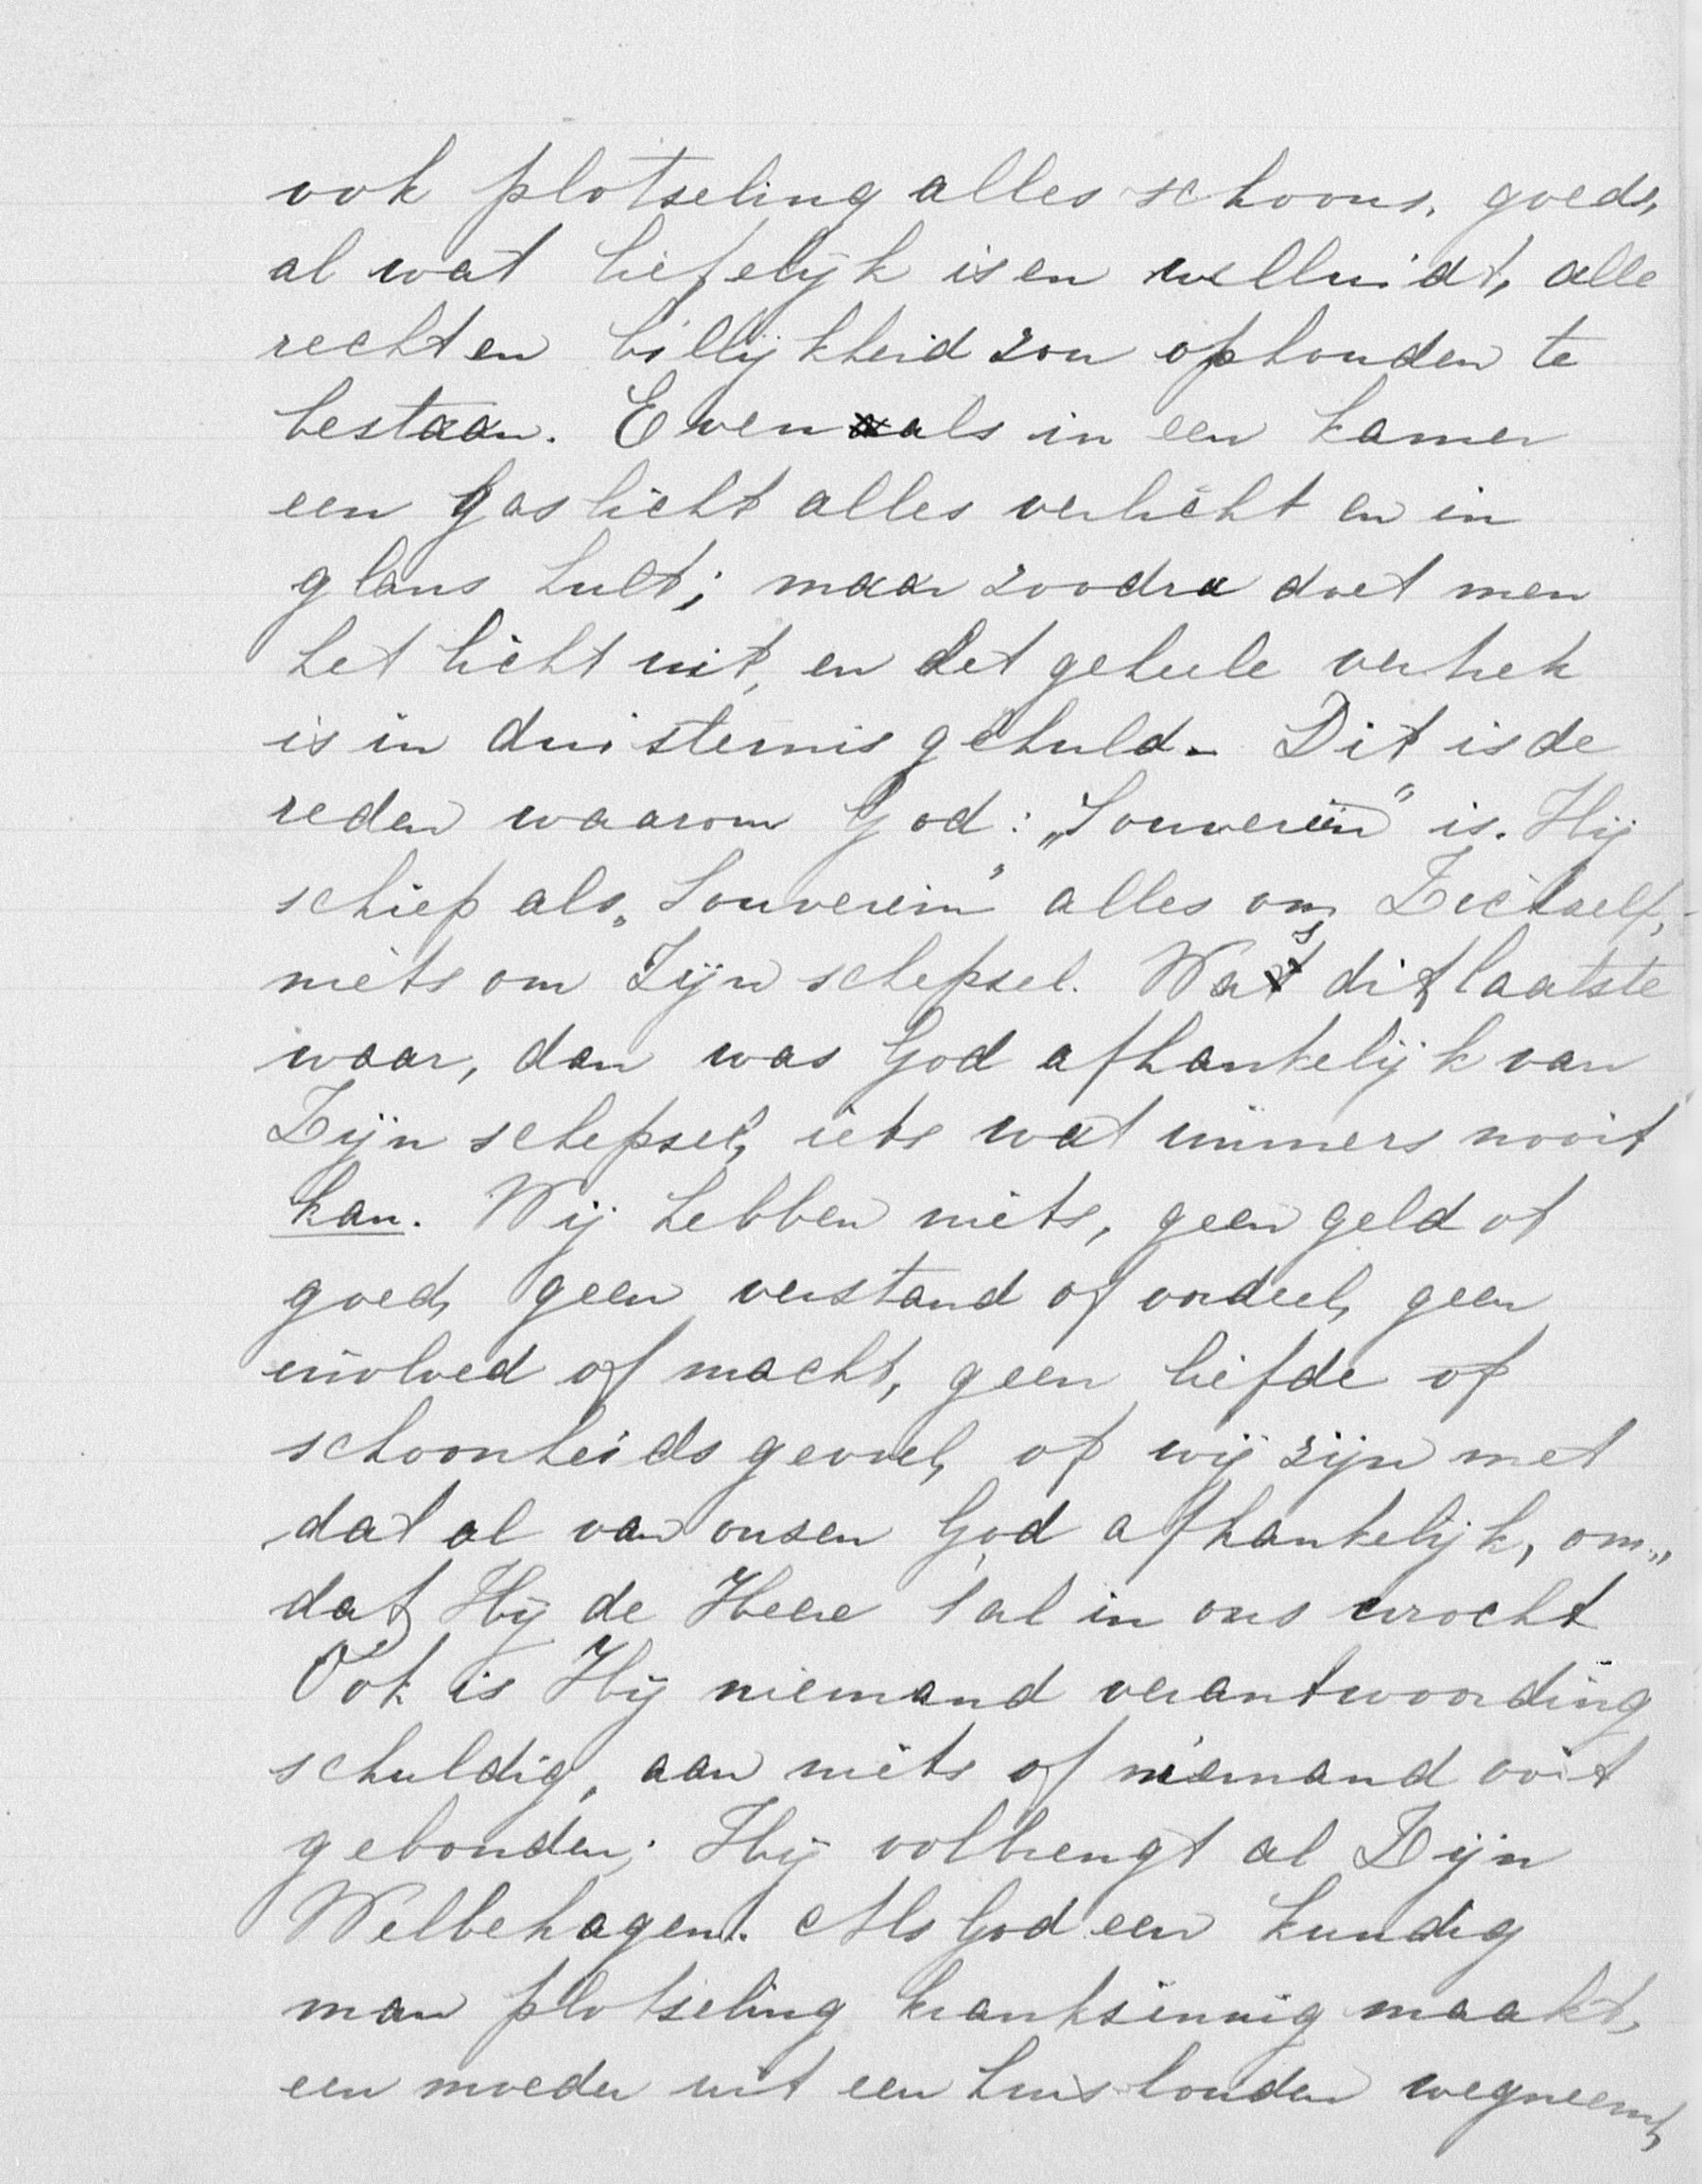 ook plotseling alles schoons, goeds,
al wat liefelijk is en welluidt, alle
recht en billijkheid zou ophouden te
bestaan. Evenals in een kamer
een gaslicht alles verlicht en in
glans hult; maar zoodra doet men
het licht uit, en het geheele vertrek
is in duisternis gehuld. Dit is de
reden waarom God: „Souverein" is. Hij
schiep als „Souverein" alles om Zichzelf,
niets om Zijn schepsel. Was dit laatste
waar, dan was God afhankelijk van
Zijn schepsel, iets wat immers nooit
kan. Wij hebben niets, geen geld of
goed, geen verstand of oordeel, geen
invloed of macht, geen liefde of
schoonheidsgevoel, of wij zijn met
dat al van onsen God afhankelijk, om„
dat Hij de Heere 't al in ons wrocht
Ook is Hij niemand verantwoording
schuldig, aan niets of niemand ooit
gebonden; Hij volbrengt al Zijn
Welbehagen. Als God een kundig
man plotseling kranksinnig maakt,
een moeder uit een huishouden wegneemt,